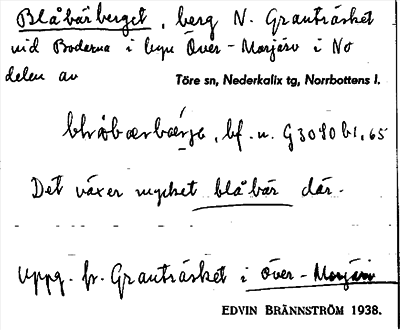 Blåbärberget, berg N. Granträsket
vid Boderna i byn Över-Morjärv i No
delen av Töre sn, Nederkalix tg, Norrbottens l.
blåbærbærje, bf. n.
Det växer mycket blåbär där.
Uppg. fr. Granträsket i Över-Morjärv
EDVIN BRÄNNSTRÖM 1938.